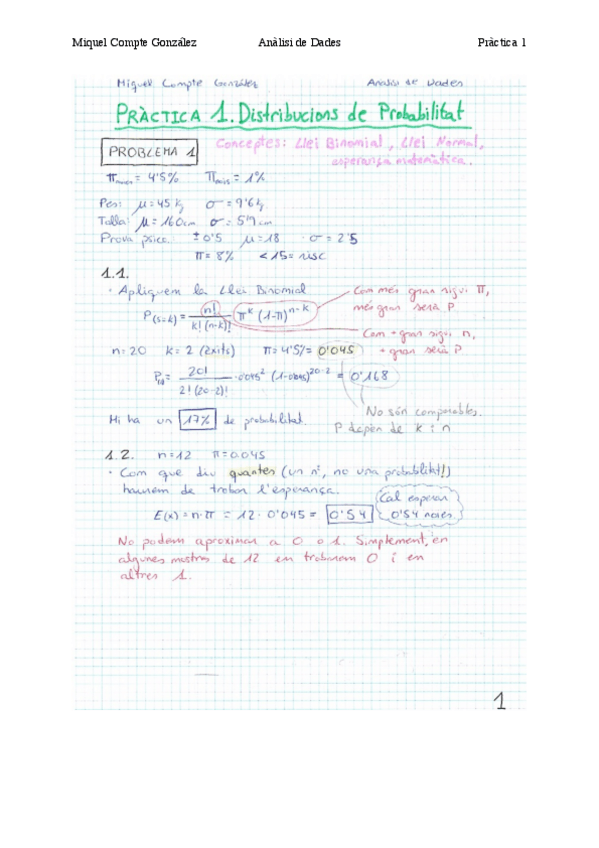 Miquel Compte González Anàlisi de Dades Pràctica 1
Miquel Compte González Anàlisi de Dades
PRÀCTICA 1. Distribucions de Probabilitat
PROBLEMA 1 Conceptes: Llei Binomial, Llei Normal,
esperança matemàtica.
π = 4'5% π = 1%
Pes: μ = 45 kg σ = 9'6 kg
Talla: μ = 160cm σ = 5'7 cm
Prova psico: ± 0'5 μ = 18 σ = 2'5
π = 8% < 15 = risc
1.1.
· Apliquem la Llei Binomial
Com més gran sigui π,
més gran serà P
P(x=k) = n! / k!(n-k)! π^k (1-π)^n-k
Com + gran sigui n,
+ gran serà P
n = 20 k = 2 (èxits) π = 4'5% = 0'045
P = 20! / 2!(20-2)! · 0'045² (1-0'045)^20-2 = 0'168
No són comparables.
P depèn de k i n
Hi ha un 17% de probabilitat.
1.2. n = 12 π = 0.045
· Com que diu quantes (un nº, no una probabilitat!)
haurem de trobar l'esperança.
Cal esperar
E(x) = n·π = 12 · 0'045 = 0'54 0'54 noies.
No podem aproximar a 0 o 1. Simplement, en
algunes mostres de 12 en trobarem 0 i en
altres 1.
1